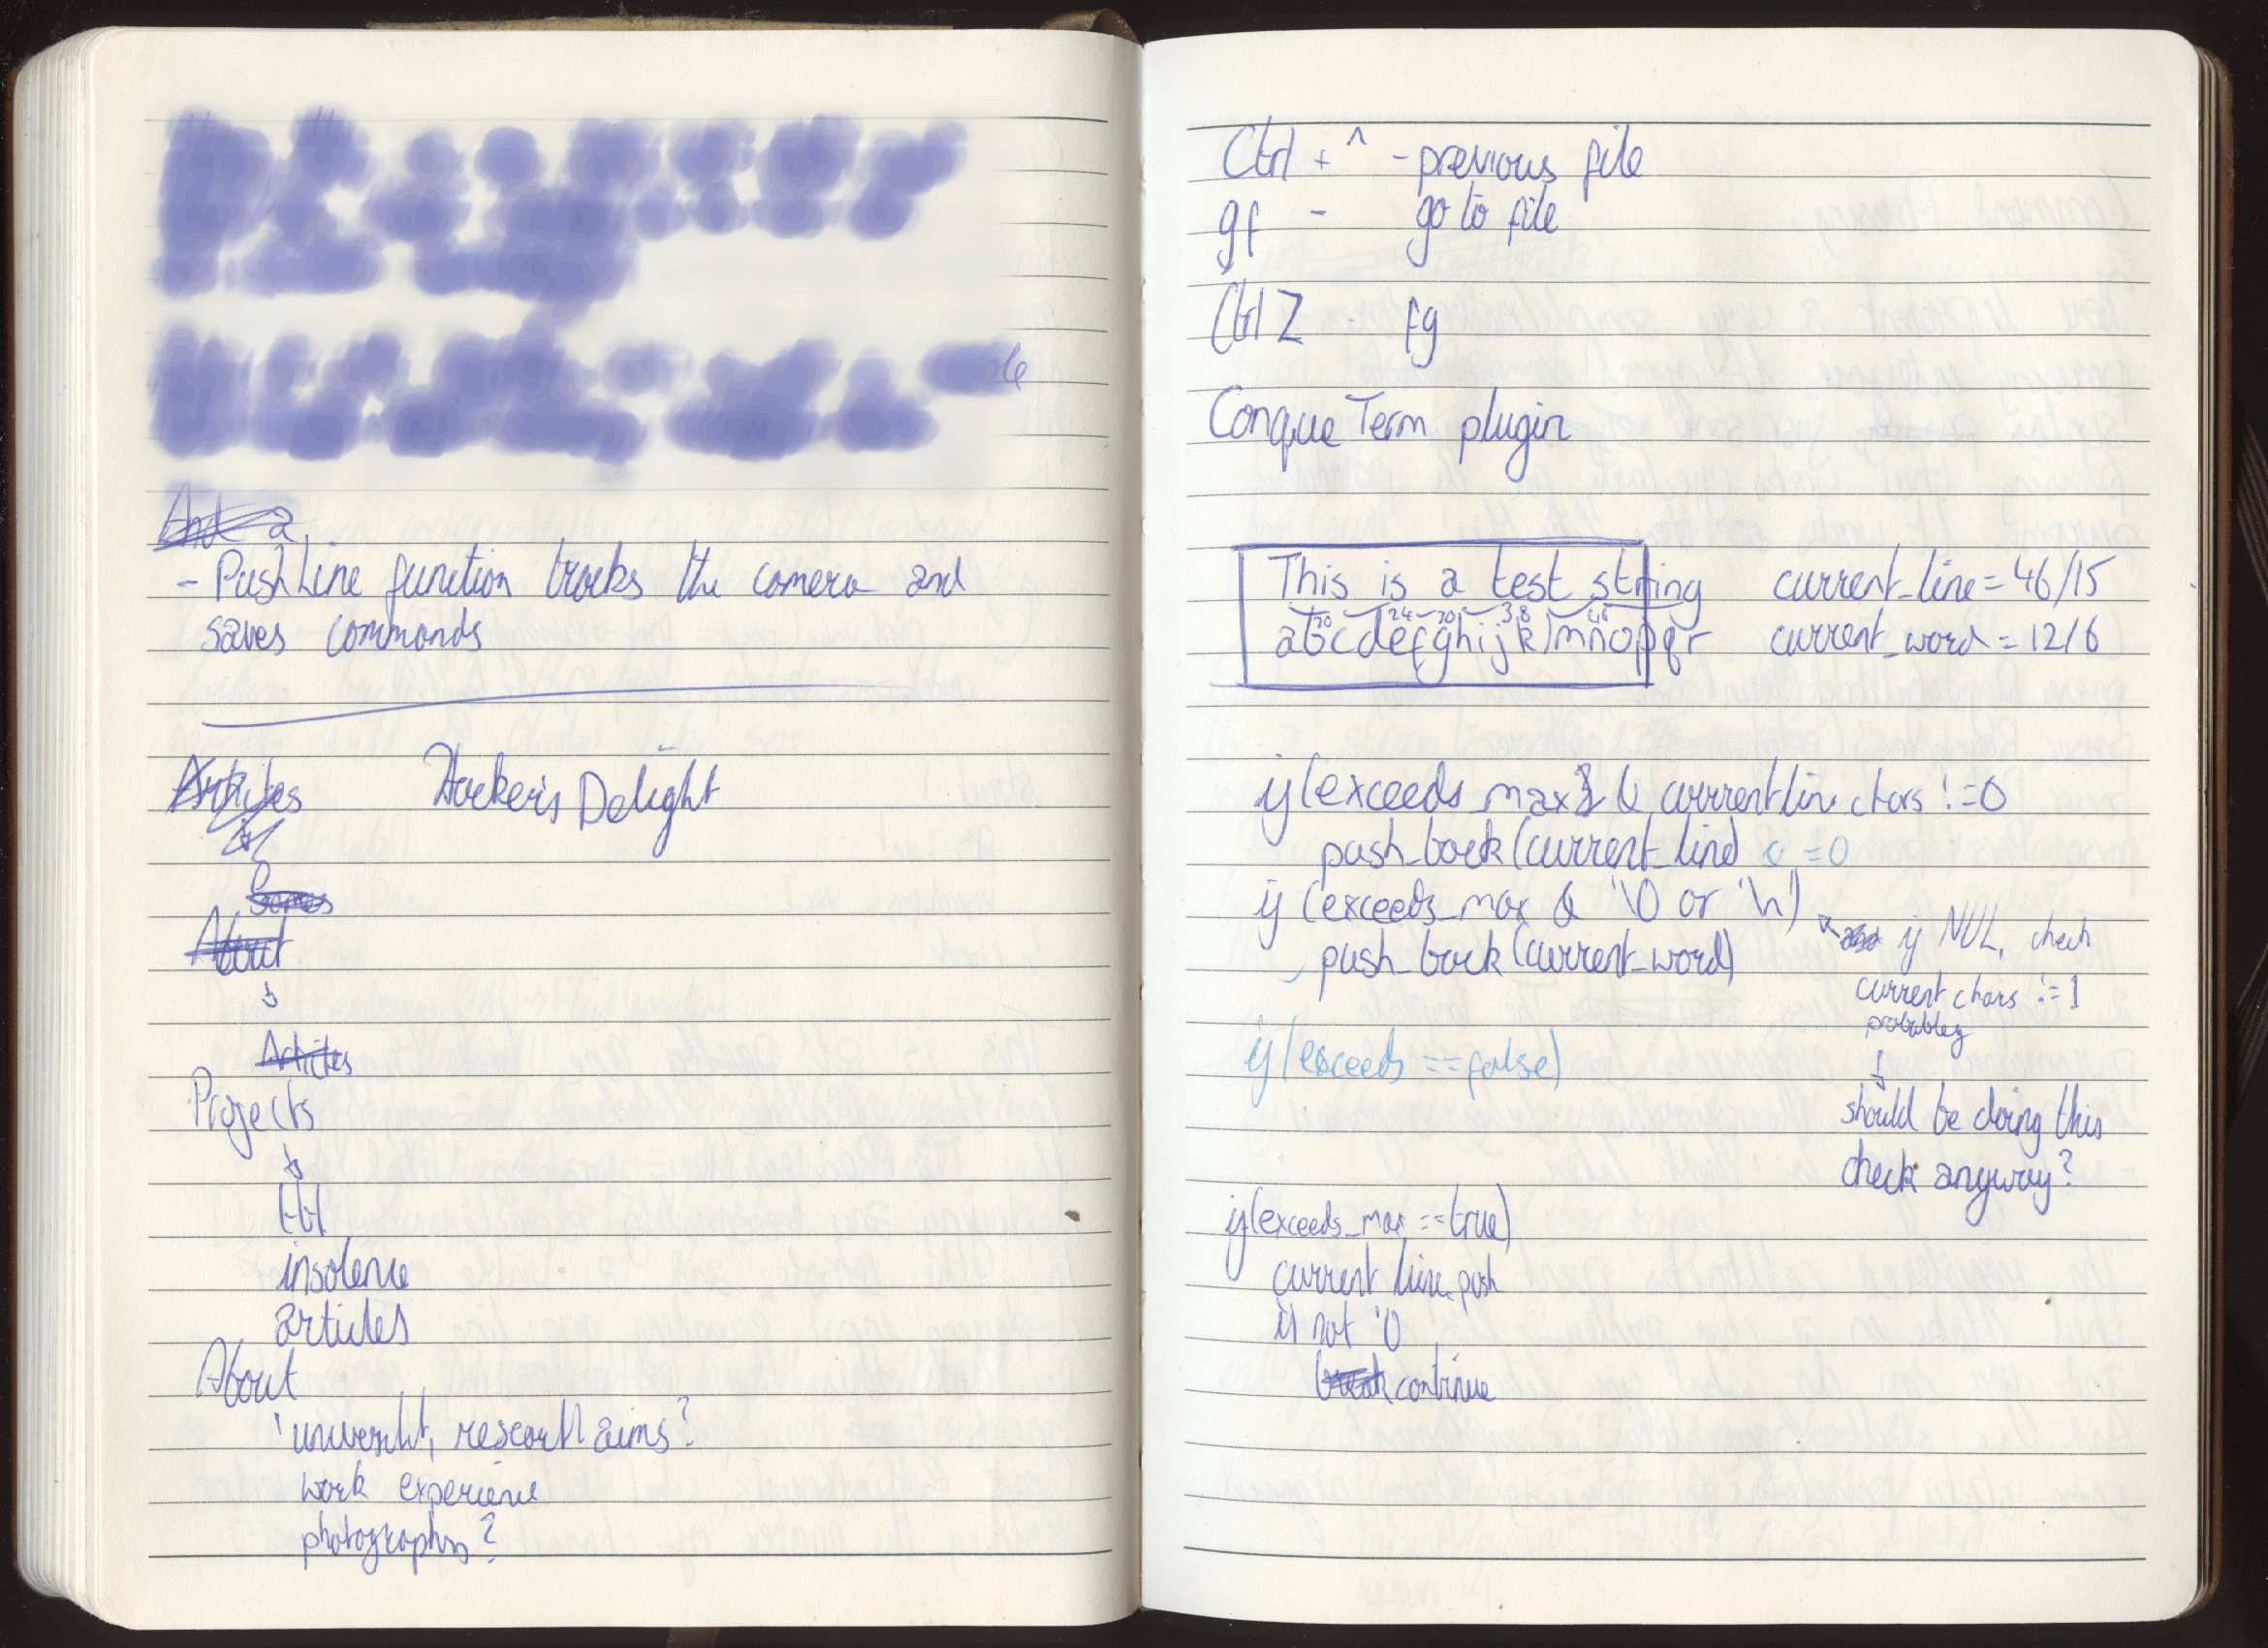 And a
- PushLine function tracks the camera and
saves commands
Articles Hacker's Delight
Games
About
Articles
Projects
tbt
insolence
articles
About
research aims?
work experience
photographs?
Ctrl + ^ - previous file
gf - go to file
Ctrl Z fg
Conque Term plugin
This is a test string current_line = 46/15
20 24 30 38 46
abcdefghijklmnopqr current_word = 12/6
if(exceeds_max & current line chars != 0
push_back(current_line) = 0
if (exceeds_max & '\0 or '\n')
push_back(current_word)
if NUL, check
current chars != 1
probabley
if(exceeds == false)
should be doing this
check anyway?
if(exceeds_max == true)
current line.push
if not '\0
break continue